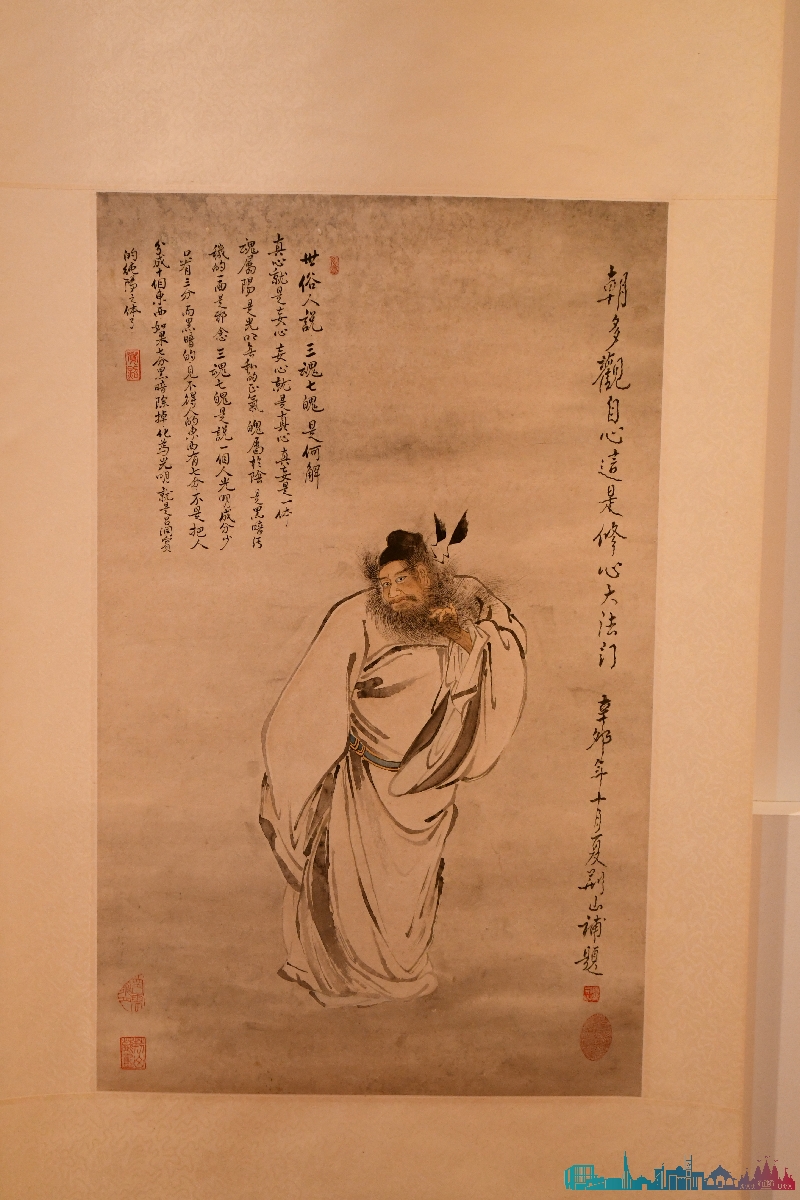 朝多觀自心這是修心大法门
辛卯年十月夏荆山補題
世俗人説三魂七魄是何解
真心就是妄心妄心就是真心真妄是一体
魂屬陽是光明無私的正氣魄屬於陰是黑暗污
穢的一面是邪念三魂七魄是説一個人光明成分少
只有三分而黑暗的見不得人的東西有七分不是把人
分成十個東西如果七分黑暗除掉化為光明就是吕洞賓
的純陽之体了